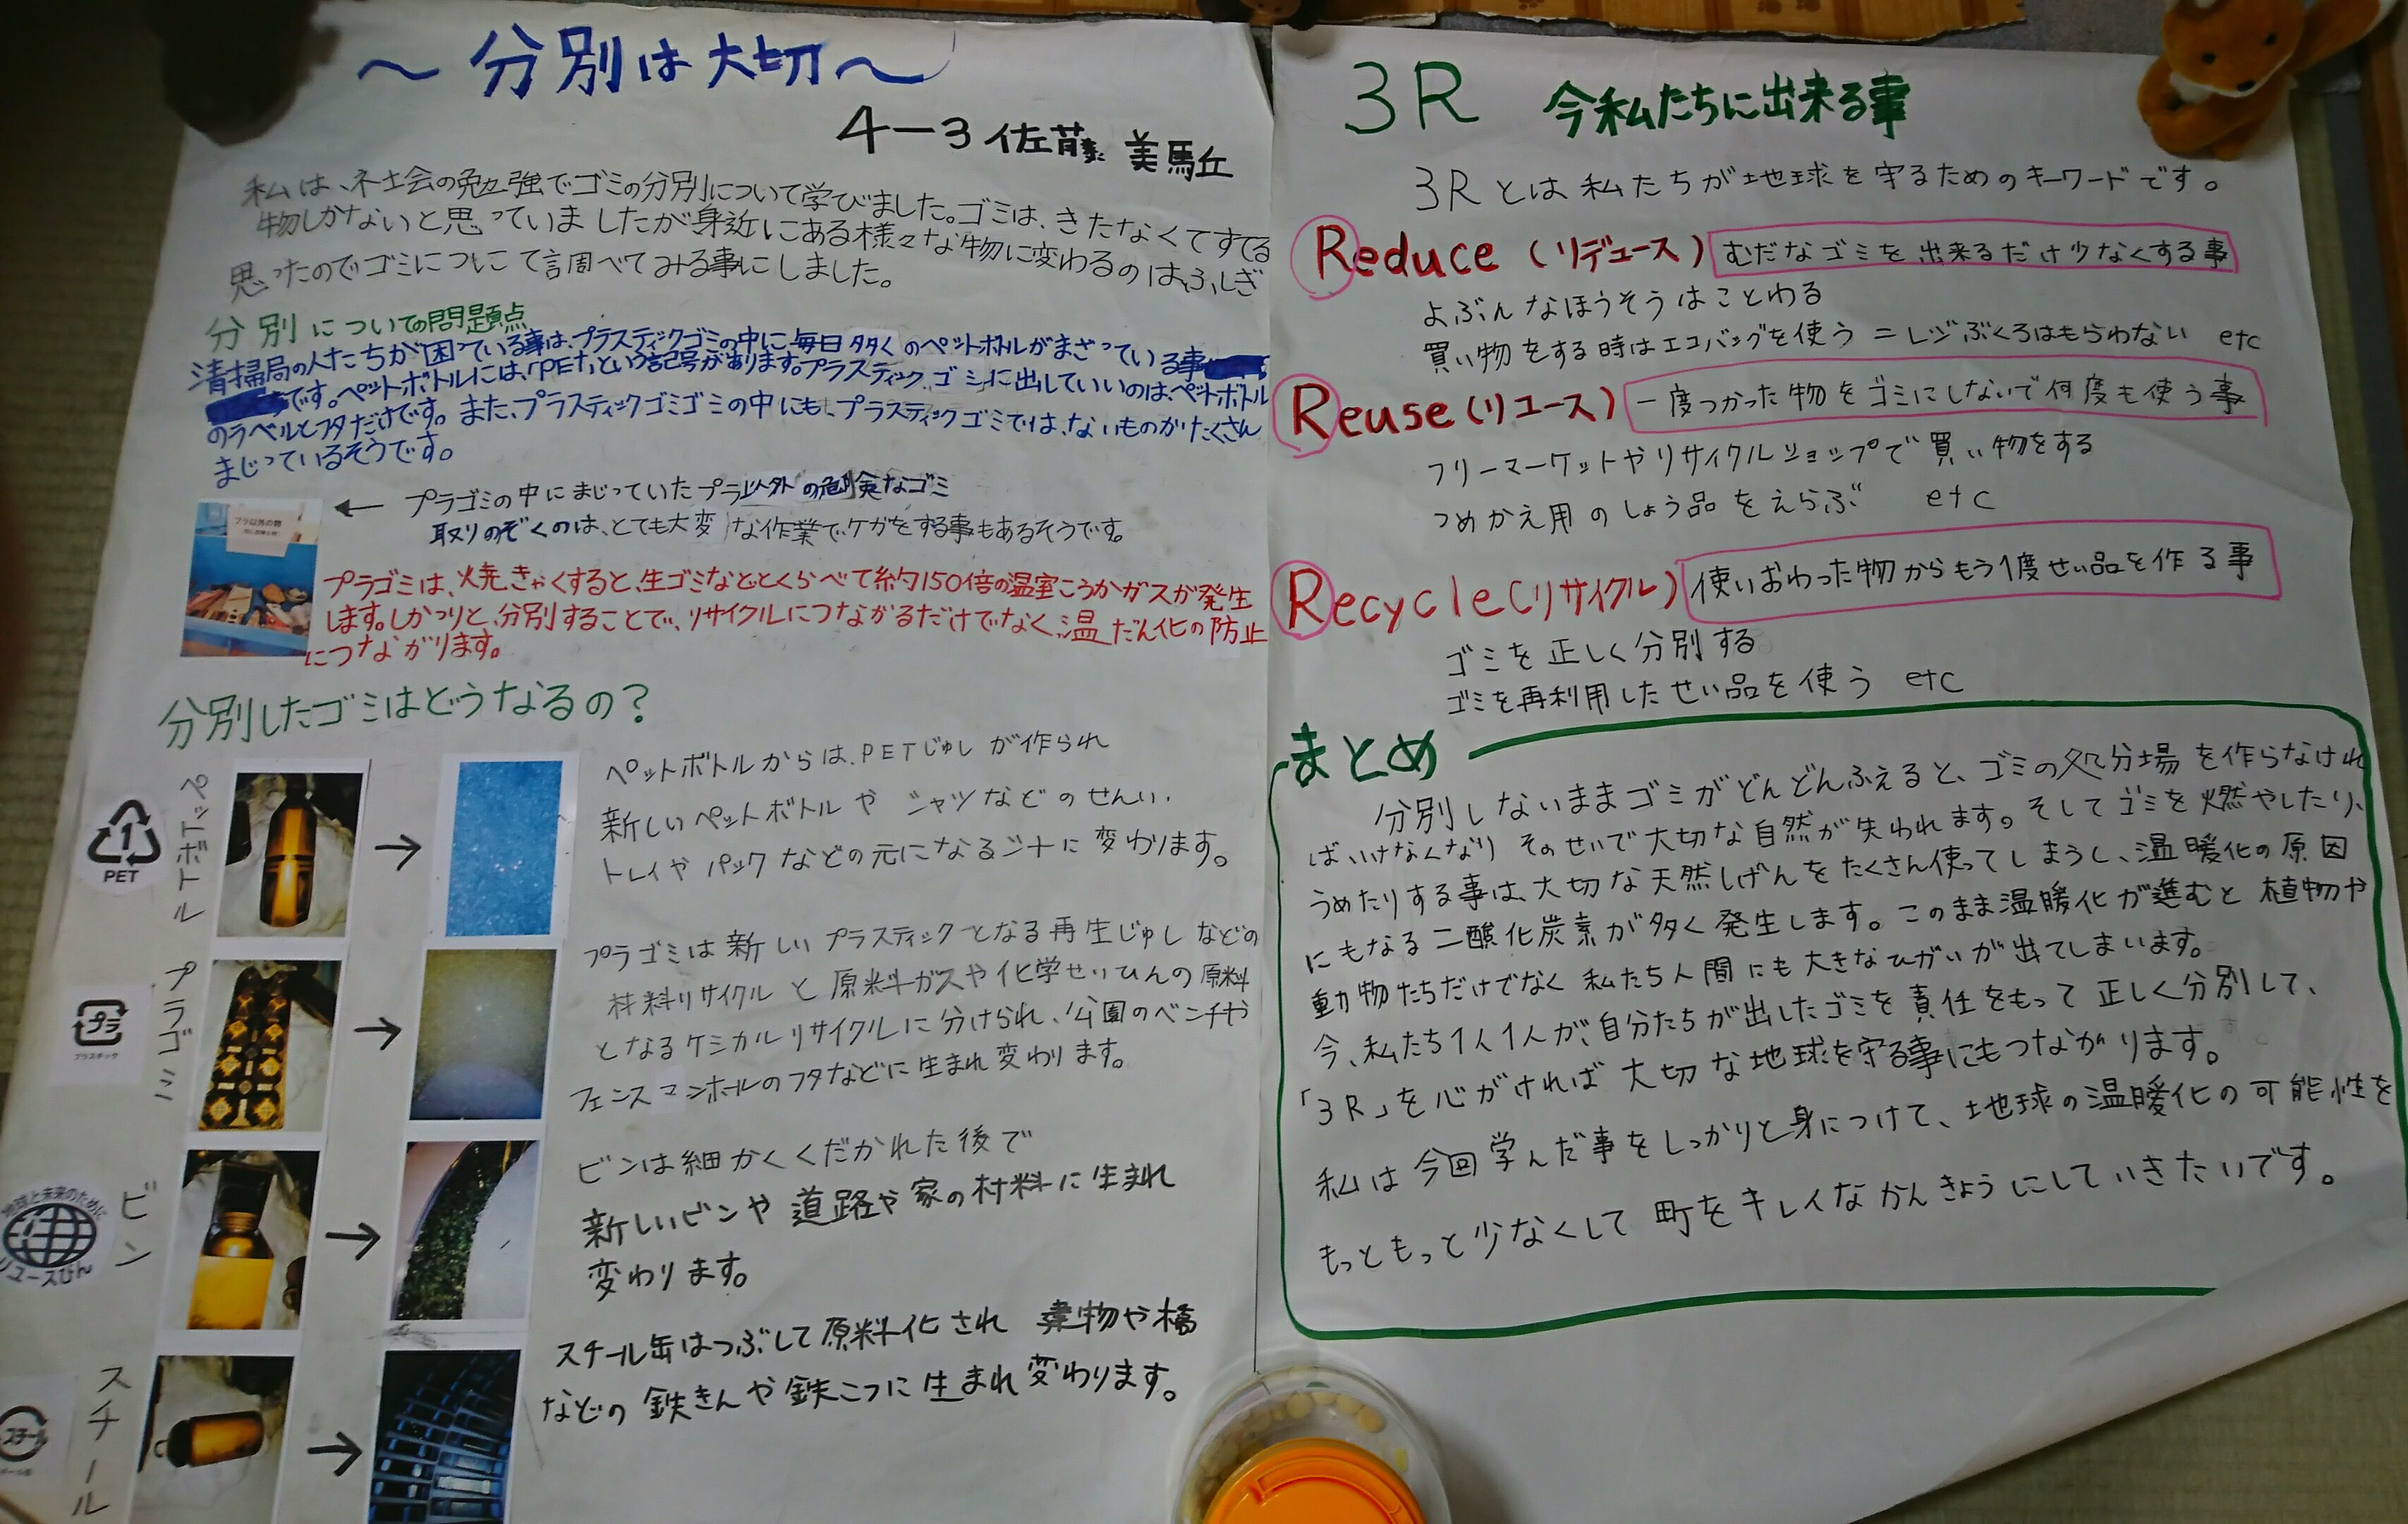 ～分別は大切～
4-3 佐藤 美馬丘
私は、社会の勉強でゴミの分別について学びました。ゴミは、きたなくてすてる
物しかないと思っていましたが身近にある様々な物に変わるのはふしぎ
思ったのでゴミについて調べてみる事にしました。
分別についての問題点
清掃局の人たちが困っている事は、プラスティックゴミの中に毎日多くのペットボトルがまざっている事
です。ペットボトルには、「PET」という記号があります。プラスティックゴミに出していいのは、ペットボトル
のラベルとフタだけです。また、プラスティックゴミゴミの中にも、プラスティックゴミでは、ないものがたくさん
まじっているそうです。
プラ以外の物
← プラゴミの中にまじっていたプラ以外の危険なゴミ
取りのぞくのは、とても大変な作業でケガをする事もあるそうです。
プラゴミは、焼きゃくすると、生ゴミなどとくらべて約150倍の温室こうかガスが発生
します。しかっりと、分別することで、リサイクルにつながるだけでなく、温だん化の防止
につながります。
分別したゴミはどうなるの？
1
PET
ペットボトル
→
ペットボトルからは、PETじゅしが作られ
新しいペットボトルや シャツなどのせんい、
トレイや パックなどの元になるシートに変わります。
プラ
プラスチック
プラゴミ
→
プラゴミは新しいプラスティックとなる再生じゅしなどの
材料リサイクルと原料ガスや化学せいひんの原料
となるケミカルリサイクルに分けられ、公園のベンチや
フェンスマンホールのフタなどに生まれ変わります。
地球と未来のために
リユースびん
ビン
→
ビンは細かくくだかれた後で
新しいビンや道路や家の材料に生まれ
変わります。
スチール
スチール
→
スチール缶はつぶして原料化され 建物や橋
などの鉄きんや鉄こつに生まれ変わります。
3R 今私たちに出来る事
3Rとは私たちが地球を守るためのキーワードです。
Reduce(リデュース) むだなゴミを出来るだけ少なくする事
よぶんなほうそうはことわる
買い物をする時はエコバッグを使う=レジぶくろはもらわない etc
Reuse(リユース) 一度つかった物をゴミにしないで何度も使う事
フリーマーケットやリサイクルショップで買い物をする
つめかえ用のしょう品をえらぶ etc
Recycle(リサイクル) 使いおわった物からもう1度せい品を作る事
ゴミを正しく分別する
ゴミを再利用したせい品を使う etc
まとめ
分別しないままゴミがどんどんふえると、ゴミの処分場を作らなけれ
ばいけなくなり そのせいで大切な自然が失われます。そしてゴミを燃やしたり、
うめたりする事は、大切な天然しげんをたくさん使ってしまうし、温暖化の原因
にもなる二酸化炭素が多く発生します。このまま温暖化が進むと植物や
動物たちだけでなく私たち人間にも大きなひがいが出てしまいます。
今、私たち1人1人が、自分たちが出したゴミを責任をもって正しく分別して、
「3R」を心がければ大切な地球を守る事にもつながります。
私は今回学んだ事をしっかりと身につけて、地球の温暖化の可能性を
もっともっと少なくして町をキレイなかんきょうにしていきたいです。